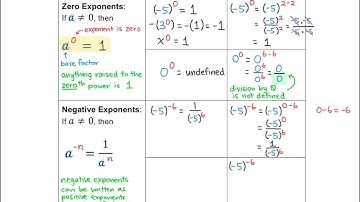 Zero Exponents:
If a ≠ 0, then
exponent is zero
a⁰ = 1
base factor
anything raised to the
zeroth power is 1
(-5)⁰ = 1
-(3⁰) = -(1) = -1
x⁰ = 1
(-5)⁰ = (-5)²⁻²
= (-5)²/(-5)² = -5·-5/-5·-5
0⁰ = undefined
0⁰ = 0⁶⁻⁶
= 0⁶/0⁶ = 0/0
division by 0
is not defined
Negative Exponents:
If a ≠ 0, then
a⁻ⁿ = 1/aⁿ
negative exponents
can be written as
positive exponents
(-5)⁻⁶ = 1/(-5)⁶
(-5)⁻⁶ = (-5)⁰⁻⁶
= (-5)⁰/(-5)⁶
= 1/(-5)⁶
0-6=-6
(-5)⁻⁶